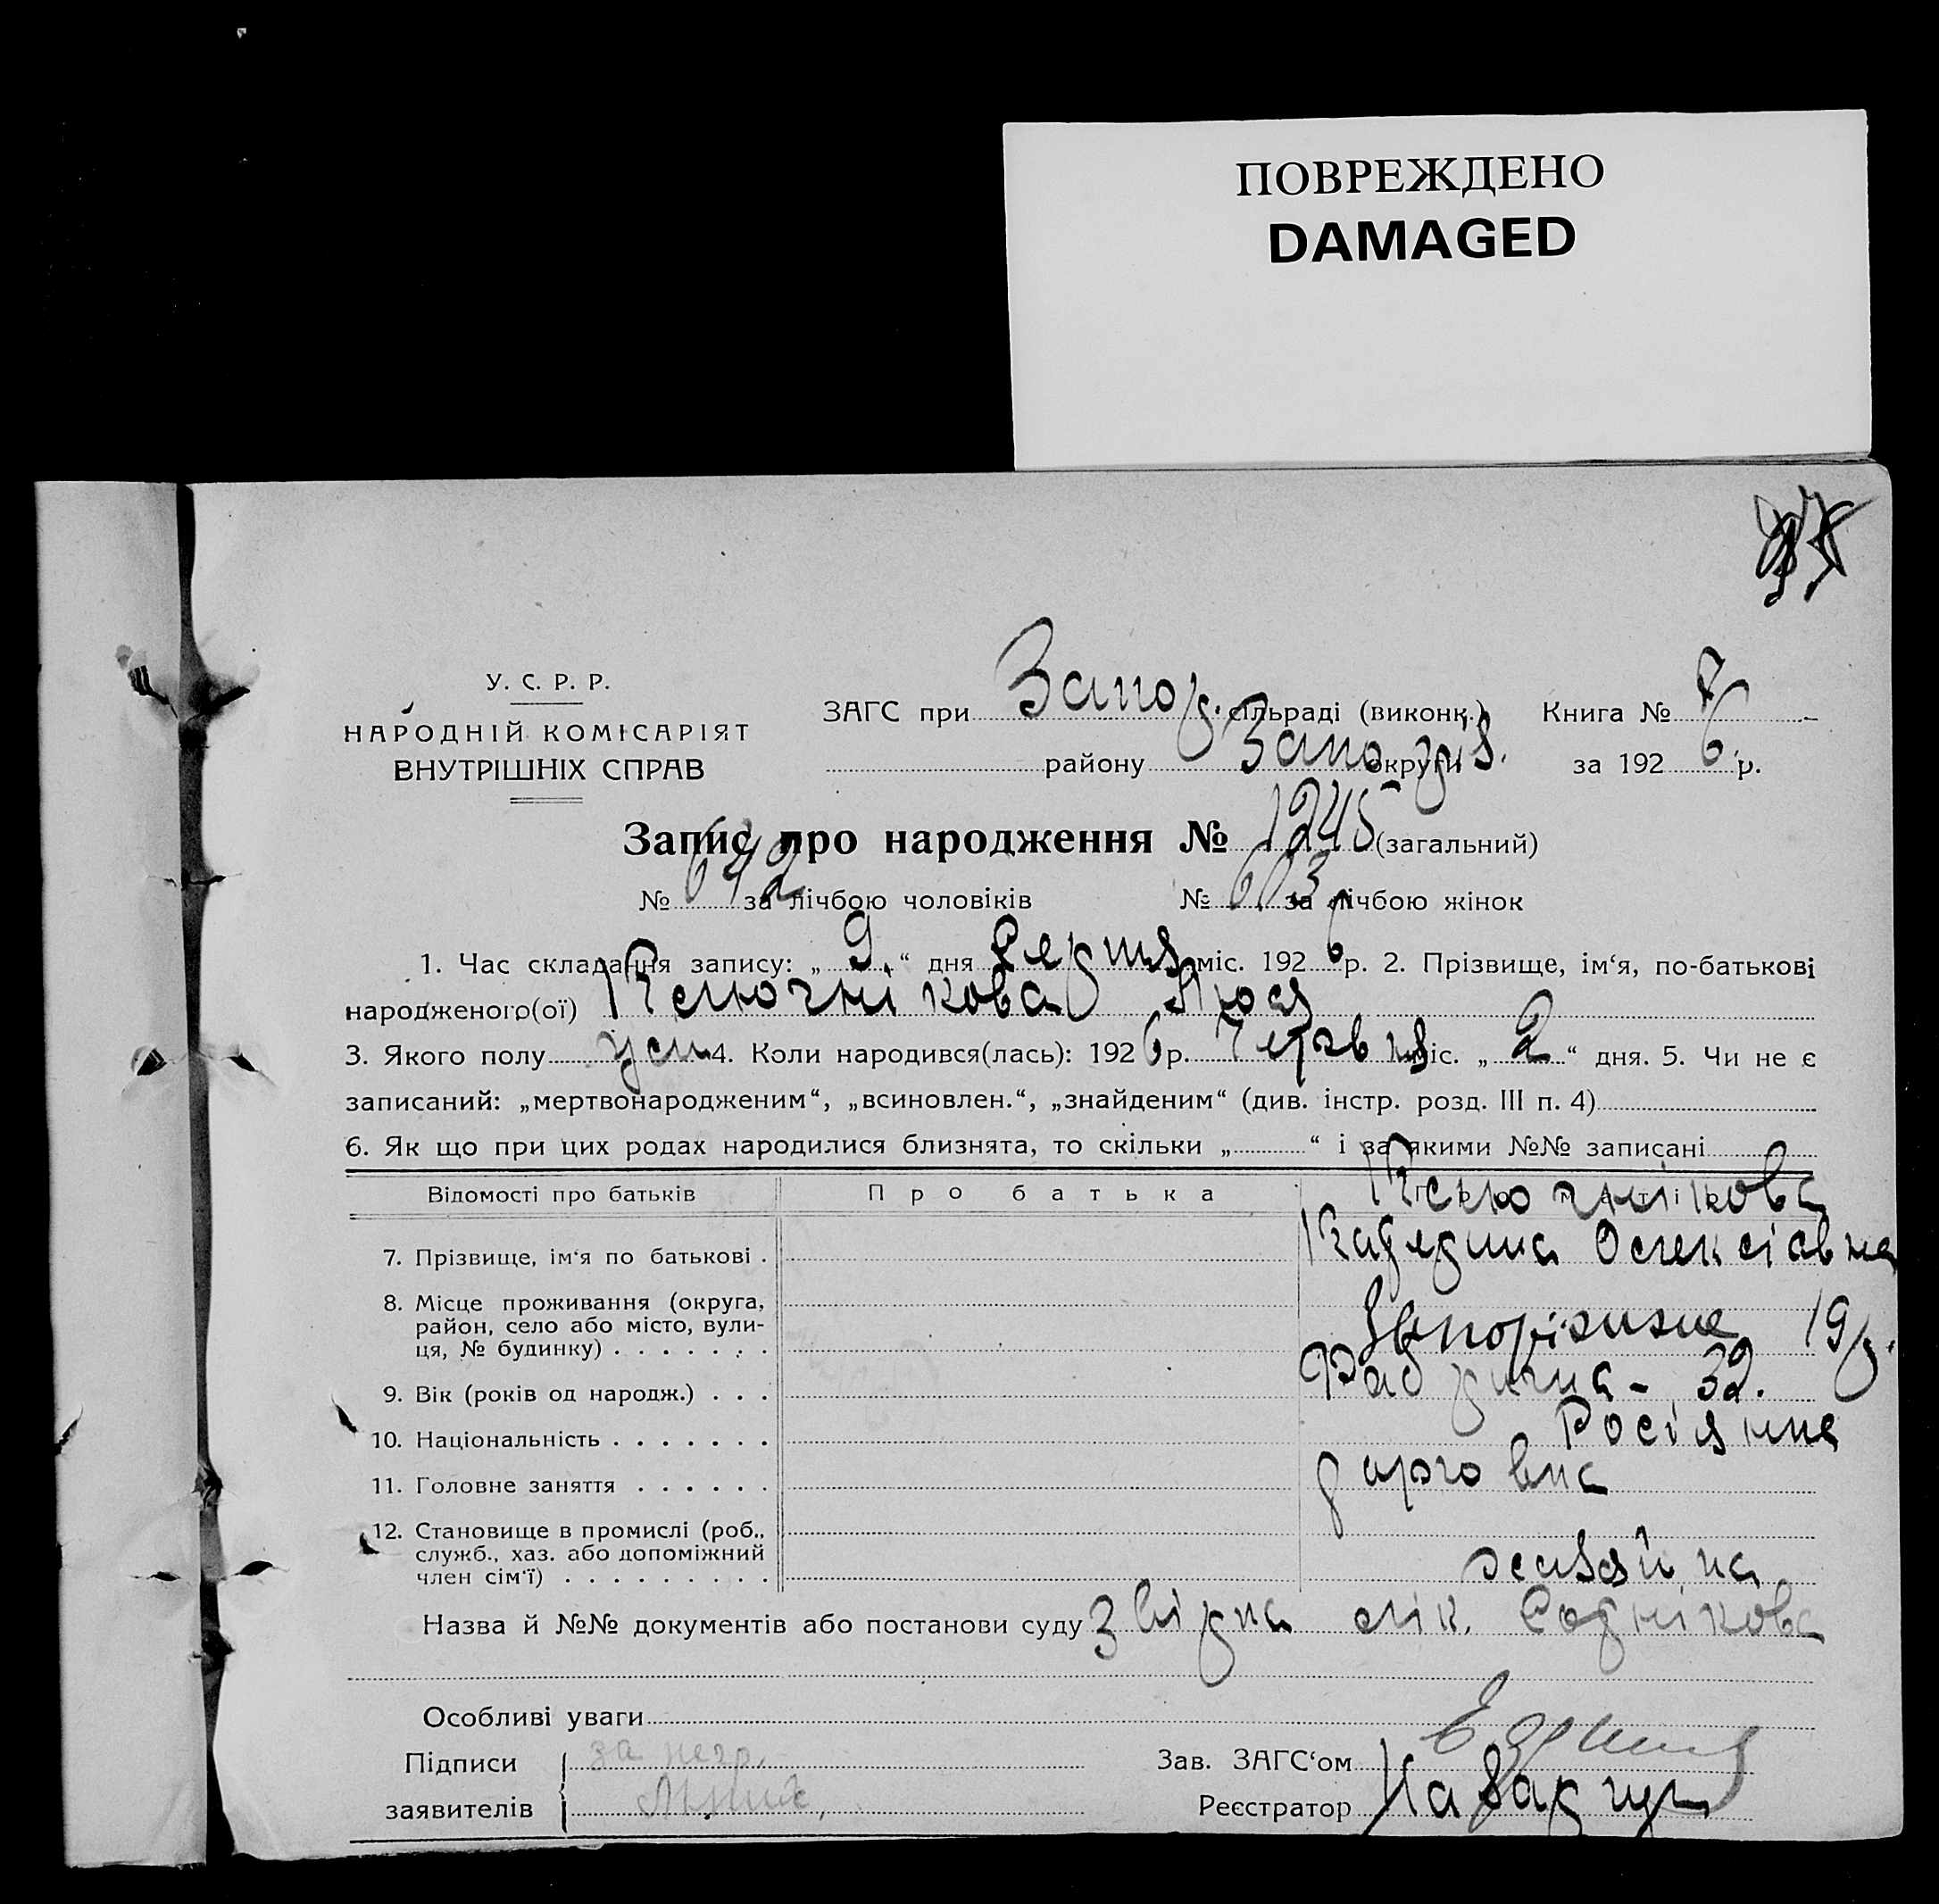 ПОВРЕЖДЕНО
DAMAGED
У. С. Р. Р.
НАРОДНІЙ КОМІСАРІЯТ
ВНУТРІШНІХ СПРАВ
ЗАГС при Запор. сільраді (виконк.) Книга № 7
району Запоріз. округи за 1926 р.
Запис про народження № 1245 (загальний)
№ 642 за лічбою чоловіків № 603 за лічбою жінок
1. Час складання запису: „9.“ дня Серпня міс. 1926 р. 2. Прізвище, ім‘я, по-батькові
народженого(ої) Ключнікова Люся
3. Якого полу жін 4. Коли народився(лась): 1926 р. Червня міс. „2“ дня. 5. Чи не є
записаний: „мертвонародженим“, „всиновлен.“, „знайденим“ (див. інстр. розд. III п. 4)
6. Як що при цих родах народилися близнята, то скільки „ “ і за якими №№ записані
Відомості про батьків Про батька Про матір
7. Прізвище, ім‘я по батькові . Ключнікова
Катерина Олексіівна
8. Місце проживання (округа,
район, село або місто, вули-
ця, № будинку) . . . . . . . Запоріжжя 19 р.
9. Вік (років од народж.) . . . Фабрична - 32.
10. Національність . . . . . . . Росіянка
11. Головне заняття . . . . . .
12. Становище в промислі (роб.,
служб., хаз. або допоміжний
член сім‘ї) . . . . . . . . . хазяйка
Назва й №№ документів або постанови суду Звірка лік. Сотнікова
Особливі уваги
Підписи за негр.
заявителів
Зав. ЗАГС‘ом
Реєстратор